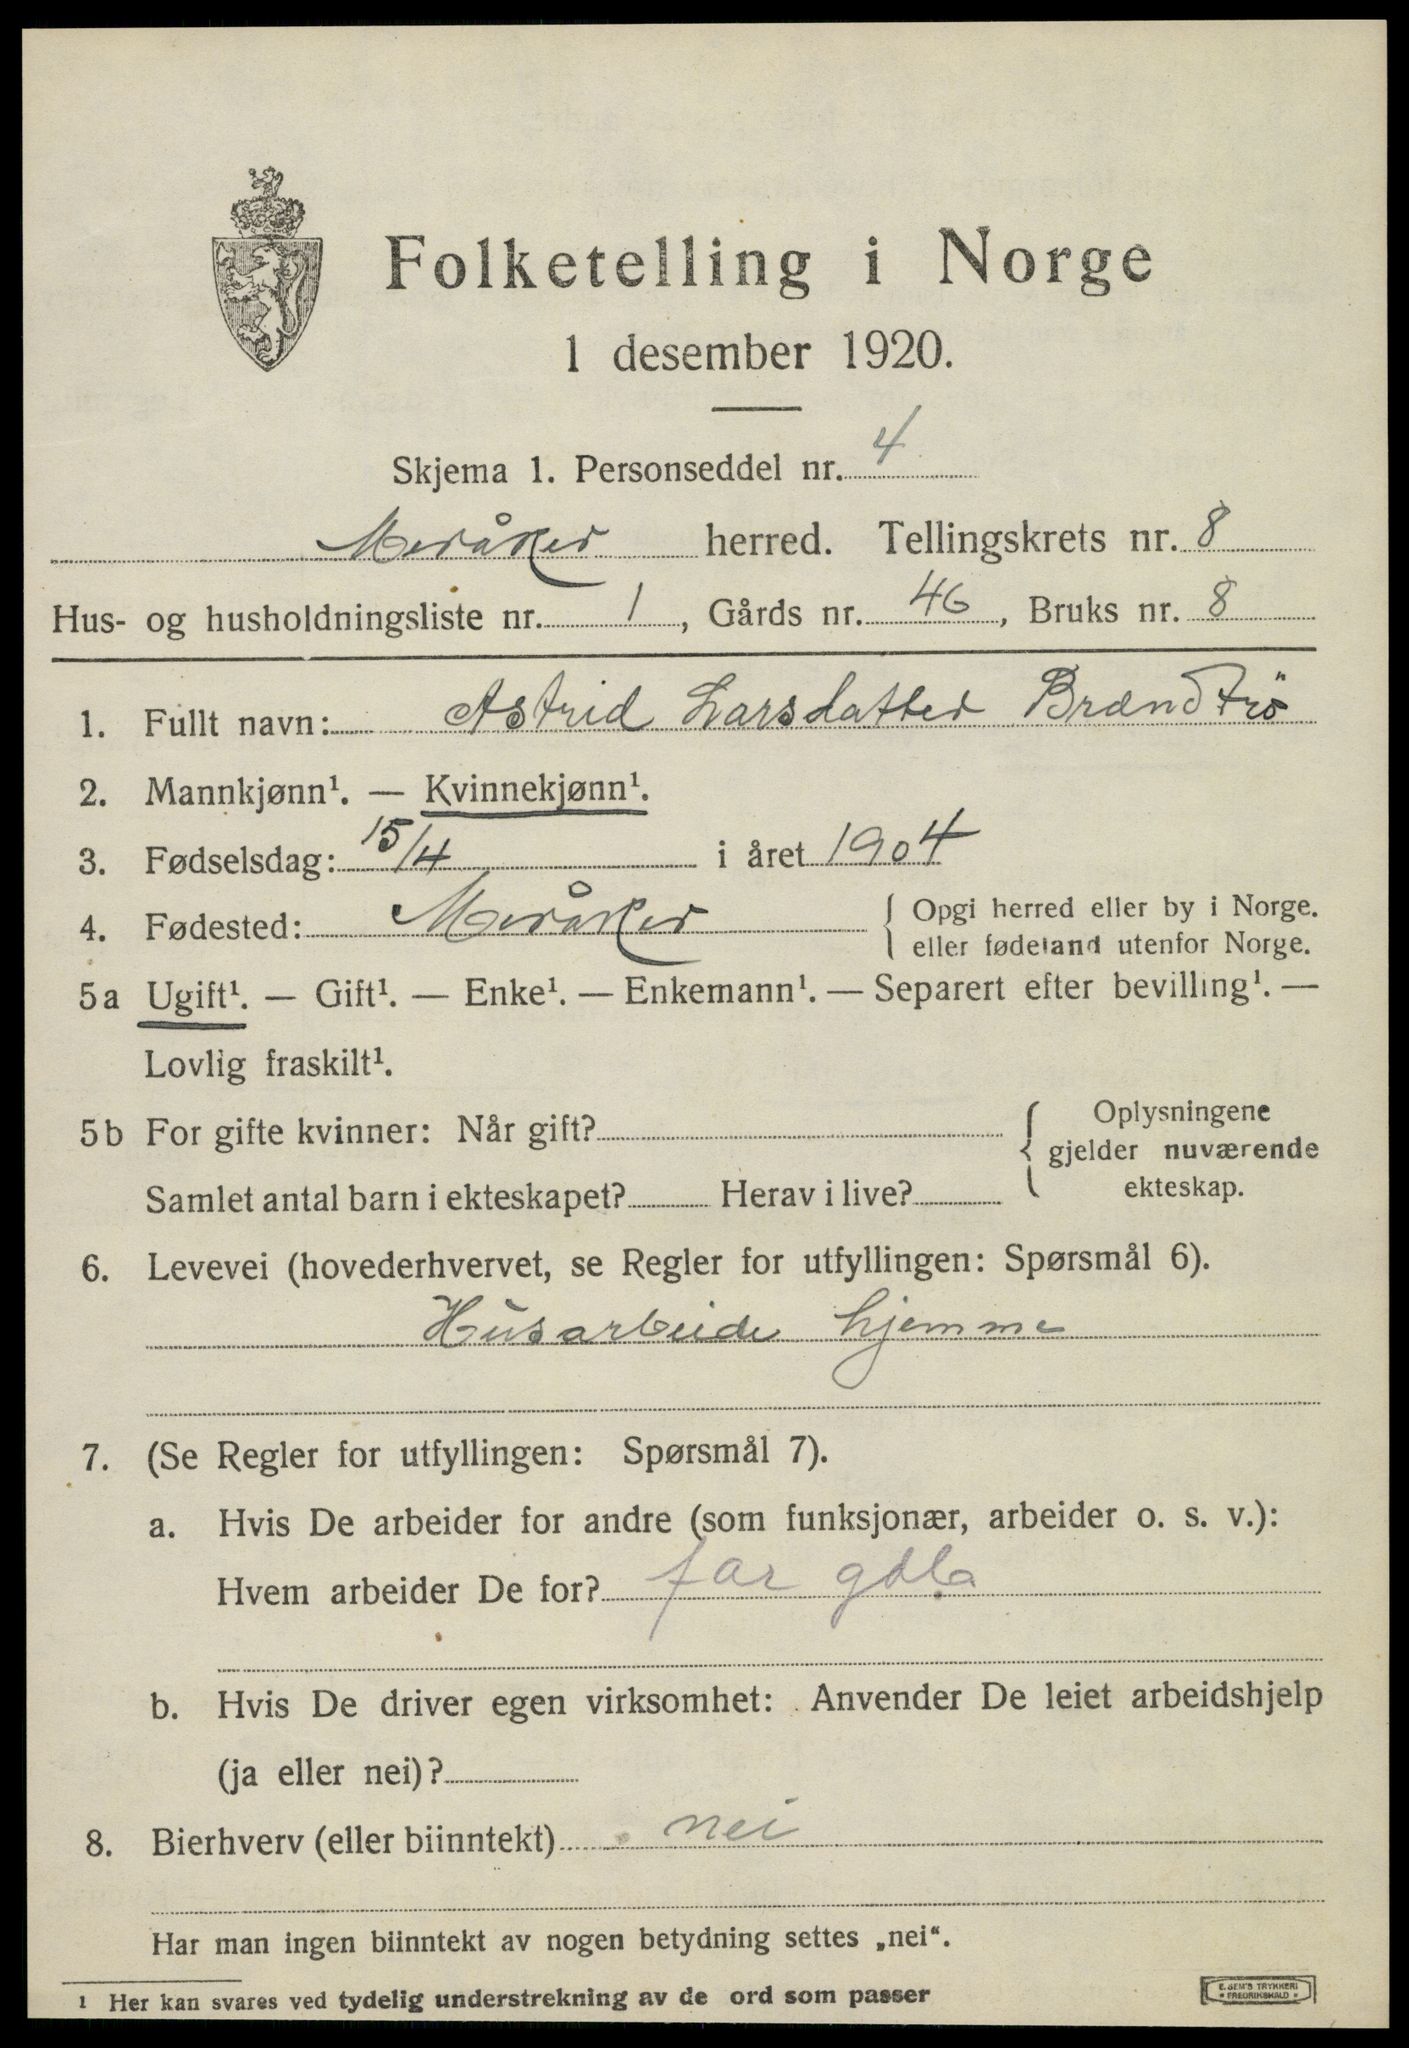 Folketelling i Norge
1 desember 1920.
Skjema 1. Personseddel nr. 4
Meråker herred. Tellingskrets nr. 8
Hus- og husholdningsliste nr. 1, Gårds nr. 46, Bruks nr. 8
1. Fullt navn: Astrid Larsdatter Brændtrö
2. Mannkjønn¹. — Kvinnekjønn¹.
3. Fødselsdag: 15/4 i året 1904
4. Fødested: Meråker { Opgi herred eller by i Norge.
eller fødeland utenfor Norge.
5a Ugift¹. — Gift¹. — Enke¹. — Enkemann¹. — Separert efter bevilling¹. —
Lovlig fraskilt¹.
5b For gifte kvinner: Når gift? { Oplysningene
gjelder nuværende
ekteskap.
Samlet antal barn i ekteskapet? Herav i live?
6. Levevei (hovederhvervet, se Regler for utfyllingen: Spørsmål 6).
Husarbeide hjemme
7. (Se Regler for utfyllingen: Spørsmål 7).
a. Hvis De arbeider for andre (som funksjonær, arbeider o. s. v.):
Hvem arbeider De for? far gdb
b. Hvis De driver egen virksomhet: Anvender De leiet arbeidshjelp
(ja eller nei)?
8. Bierhverv (eller biinntekt) nei
Har man ingen biinntekt av nogen betydning settes „nei“.
1 Her kan svares ved tydelig understrekning av de ord som passer
E. SEM'S TRYKKERI
FREDRIKSHALD